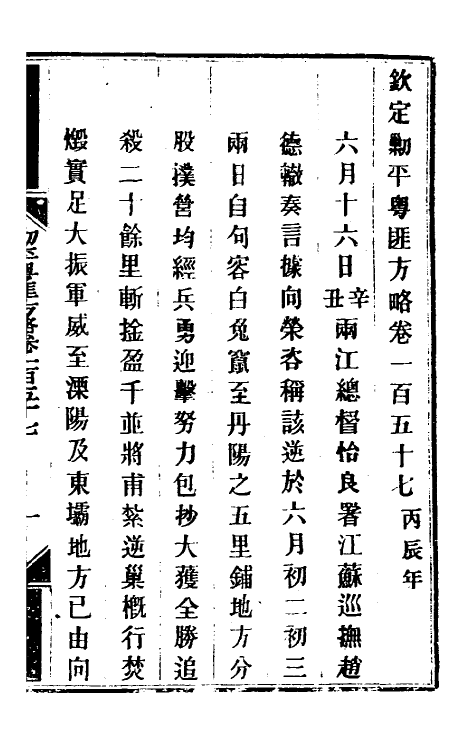 欽定勦平粵匪方略卷一百五十七 丙辰年
六月十六日辛丑兩江總督怡良署江蘇巡撫趙
德轍奏言據向榮咨稱該逆於六月初二初三
兩日自句容白兔竄至丹陽之五里鋪地方分
股撲營均經兵勇迎擊努力包抄大獲全勝追
殺二十餘里斬擒盈千並將甫紮逆巢概行焚
燬實足大振軍威至溧陽及東壩地方已由向